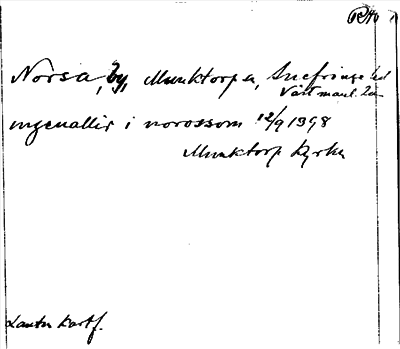 Norsa, by, Munktorp s, Snefringe hd
Västmanl. län
ingenallir i norossom 12/9 1398
Munktorp kyrka
Lantm kart f.